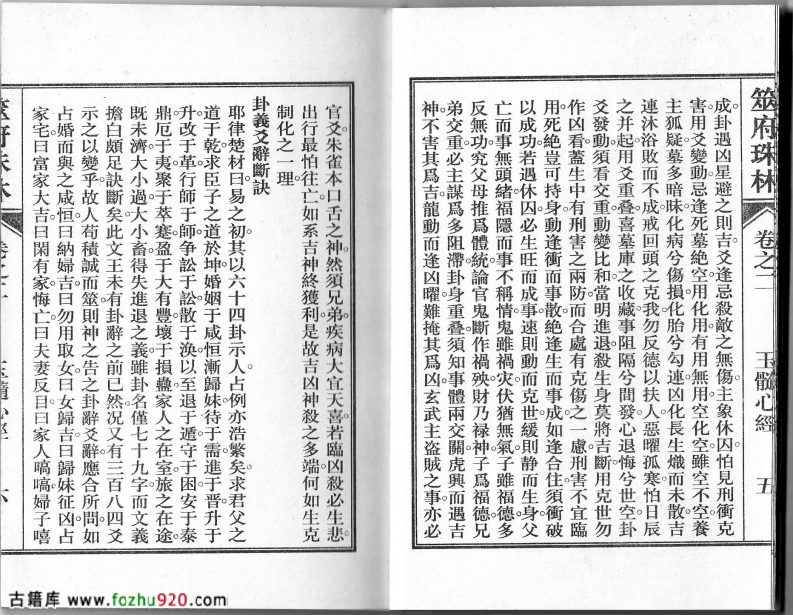 筮府珠林
卷之二
玉髓心經
五
成卦遇凶星避之則吉爻逢忌殺敵之無傷主象休囚怕見刑衝克
害用爻變動忌逢死墓絶空用化用有用無用空化空雖空不空養
主狐疑墓多暗昧化病兮傷損化胎兮勾連凶化長生熾而未散吉
連沐浴敗而不成戒回頭之克我勿反德以扶人惡曜孤寒怕日辰
之并起用爻重疊喜墓庫之收藏事阻隔兮間發心退悔兮世空卦
爻發動須看交重動變比和當明進退殺生身莫將吉斷用克世勿
作凶看蓋生中有刑害之兩防而合處有克傷之一慮刑害不宜臨
用死絶豈可持身動逢衝而事散絶逢生而事成如逢合住須衝破
以成功若遇休囚必生旺而成事速則動而克世緩則静而生身父
亡而事無頭緒福隱而事不稱情鬼雖禍灾伏猶無氣子雖福德多
反無功究父母推爲體統論官鬼斷作禍殃財乃禄神子爲福德兄
弟交重必主謀爲多阻滯卦身重叠須知事體兩交關虎興而遇吉
神不害其爲吉龍動而逢凶曜難掩其爲凶玄武主盗賊之事亦必
官爻朱雀本口舌之神然須兄弟疾病大宜天喜若臨凶殺必生悲
出行最怕往亡如系吉神終獲利是故吉凶神殺之多端何如生克
制化之一理
卦義爻辭斷訣
耶律楚材曰易之初其以六十四卦示人占例亦浩繁矣求君父之
道于乾求臣子之道於坤婚姻于咸恒漸歸妹待于需進于晋升于
升改于革行師于師争訟于訟散于涣以至退于遁守于困安于泰
鼎厄于夷聚于萃寒盈于大有豐壞于損蠱家人之在室旅之在途
既未濟大小過大小畜得失進退之義雖卦名僅七十九字而文義
擔白頗足訣斷矣此文王未有卦辭之前已然况又有三百八四爻
示之以變乎故人苟積誠而筮則神之告之卦辭爻辭應合所問如
占婚而與之咸恒曰納婦吉曰勿用取女曰女歸吉曰歸妹征凶占
家宅曰富家大吉曰閑有家悔亡曰夫妻反目曰家人嗃嗃婦子嘻
筮府珠林
卷之二
玉髓心經
六
古籍库 www.fozhu920.com